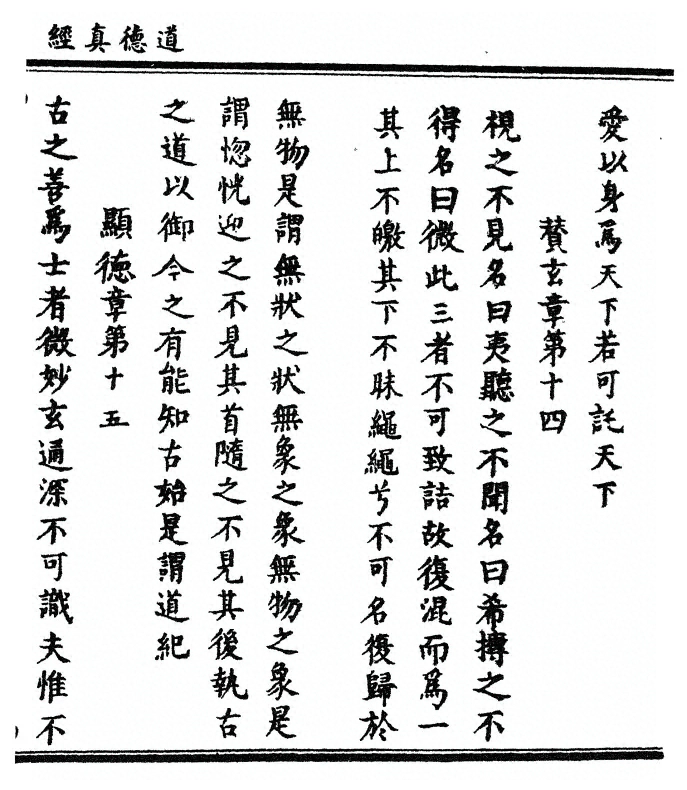 道德真經
愛以身爲天下若可託天下
贊玄章第十四
視之不見名曰夷聽之不聞名曰希摶之不
得名曰微此三者不可致詰故復混而爲一
其上不皦其下不昧繩繩兮不可名復歸於
無物是謂無狀之狀無象之象無物之象是
謂惚恍迎之不見其首隨之不見其後執古
之道以御今之有能知古始是謂道紀
顯德章第十五
古之善爲士者微妙玄通深不可識夫惟不